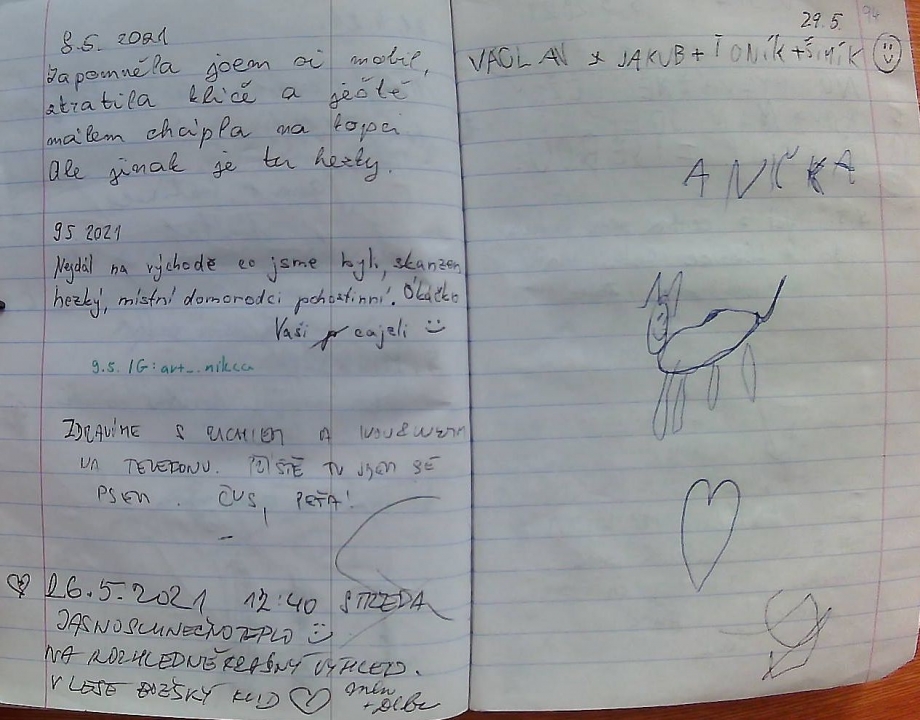 8.5. 2021
Zapomněla jsem si mobil,
stratila klíče a ještě
málem chápla na
Ale jinak je tu hezky.
9.5 2021
Nejdál na východě co jsme byli, skanzen
hezký, místní domorodci pohostinní.
Vaši čajeli
9.5. IG: art_.nikca
ZDRAVÍME S A
NA TELEFONU. PŘÍŠTĚ TU JSEM SE
PSEM. ČUS, PEŤA!
26.5.2021 12:40 STŘEDA
JASNO SLUNEČNO TEPLO
NA ROZHLEDNĚ KRÁSNÝ VÝHLED.
V LESE BOŽSKÝ KLID
29.5. 94
VÁCLAV X JAKUB + TONÍK + ŠIMÍK
ANIČKA